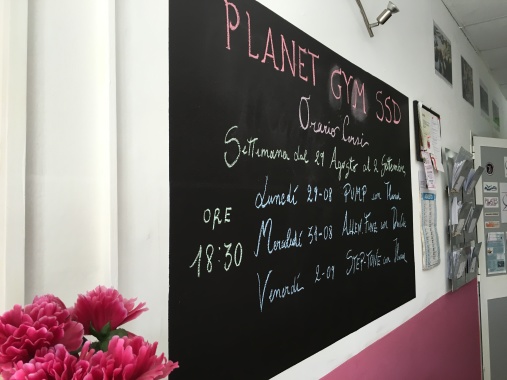 PLANET GYM SSD
Orario Corsi
Settimana dal 29 Agosto al 2 Settembre
ORE
18:30
Lunedí 29-08 PUMP con
Mercoledí 31-08 TONE con
Venerdí 2-09 STEP-TONE con